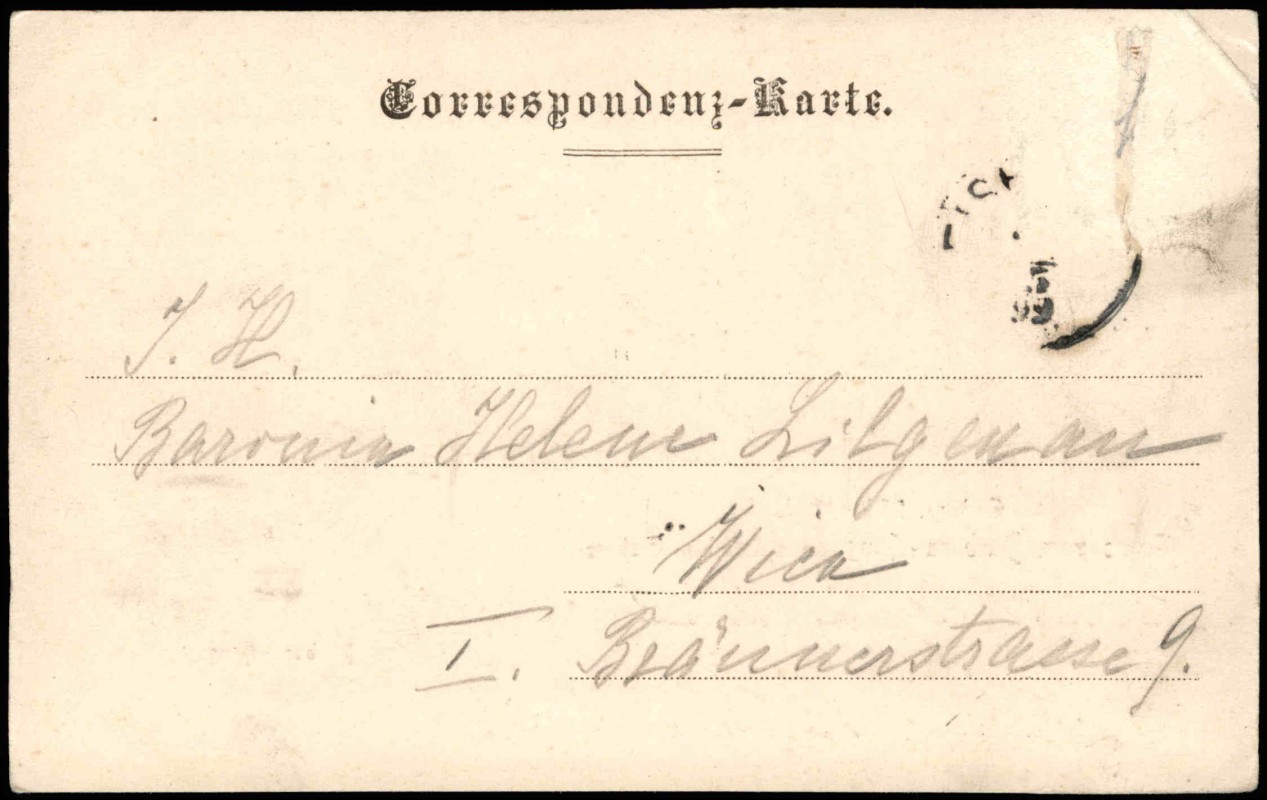 Correspondenz-Karte.
I. H.
Baronin Helene Lilgenau
Wien
I. Bräunerstrasse 9.